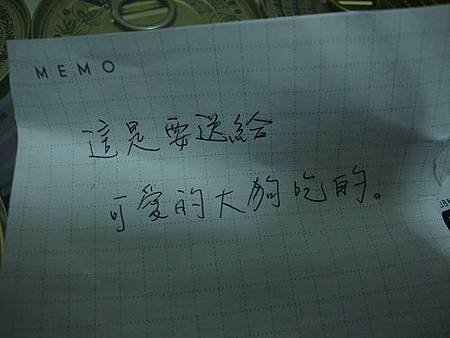 MEMO
這是要送給
可愛的大狗吃的。